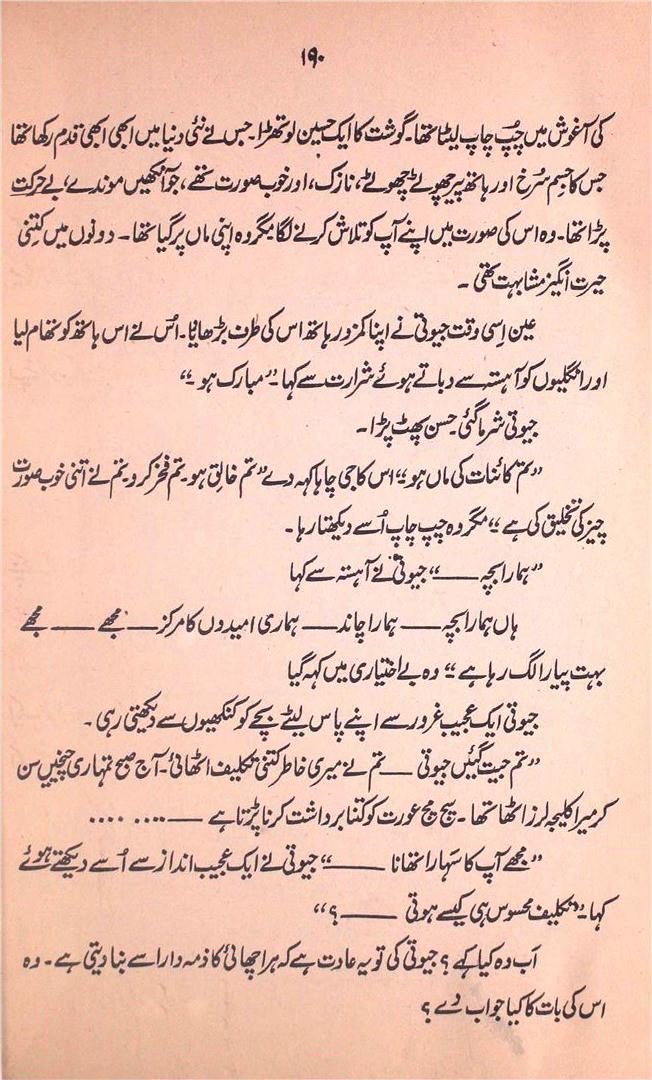 ۱۹۰
کی آغوش میں چپ چاپ لیٹا تھا۔ گوشت کا ایک حسین لوتھڑا۔ جس نے نئی دنیا میں ابھی ابھی قدم رکھا تھا
جس کا جسم سُرخ اور ہاتھ پیر چھوٹے چھوٹے، نازک، اور خوب صورت تھے، جو آنکھیں موندے، بے حرکت
پڑا تھا۔ وہ اس کی صورت میں اپنے آپ کو تلاش کرنے لگا مگر وہ اپنی ماں پر گیا تھا۔ دونوں میں کتنی
حیرت انگیز مشابہت تھی ۔
عین اِسی وقت جیوتی نے اپنا کمزور ہاتھ اس کی طرف بڑھایا۔ اُس نے اس ہاتھ کو تھام لیا
اور انگلیوں کو آہستہ سے دباتے ہوئے شرارت سے کہا۔ "مبارک ہو ۔"
جیوتی شرما گئی۔ حسن پھٹ پڑا ۔
"تم کائنات کی ماں ہو" اس کا جی چاہا کہہ دے "تم خالق ہو۔ تم فخر کرو۔ تم نے اتنی خوب صورت
چیز کی تخلیق کی ہے" مگر وہ چپ چاپ اُسے دیکھتا رہا ۔
"ہمارا بچہ ——" جیوتی نے آہستہ سے کہا
ہاں ہمارا بچہ —— ہمارا چاند —— ہماری امیدوں کا مرکز —— مجھے —— مجھے
بہت پیارا لگ رہا ہے" وہ بے اختیاری میں کہہ گیا
جیوتی ایک عجیب غرور سے اپنے پاس لیٹے بچے کو کنکھیوں سے دیکھتی رہی ۔
"تم جیت گئیں جیوتی —— تم نے میری خاطر کتنی تکلیف اٹھائی۔ آج صبح تمہاری چیخیں سن
کر میرا کلیجہ لرز اٹھا تھا ۔ سچ مچ عورت کو کتنا برداشت کرنا پڑتا ہے —— .... ....
"مجھے آپ کا سہارا تھا نا ——" جیوتی نے ایک عجیب انداز سے اُسے دیکھتے ہوئے
کہا۔ "تکلیف محسوس ہی کیسے ہوتی —— ؟"
اَب وہ کیا کہے ؟ جیوتی کی تو یہ عادت ہے کہ ہر اچھائی کا ذمہ دار اسے بنا دیتی ہے ۔ وہ
اس کی بات کا کیا جواب دے ؟